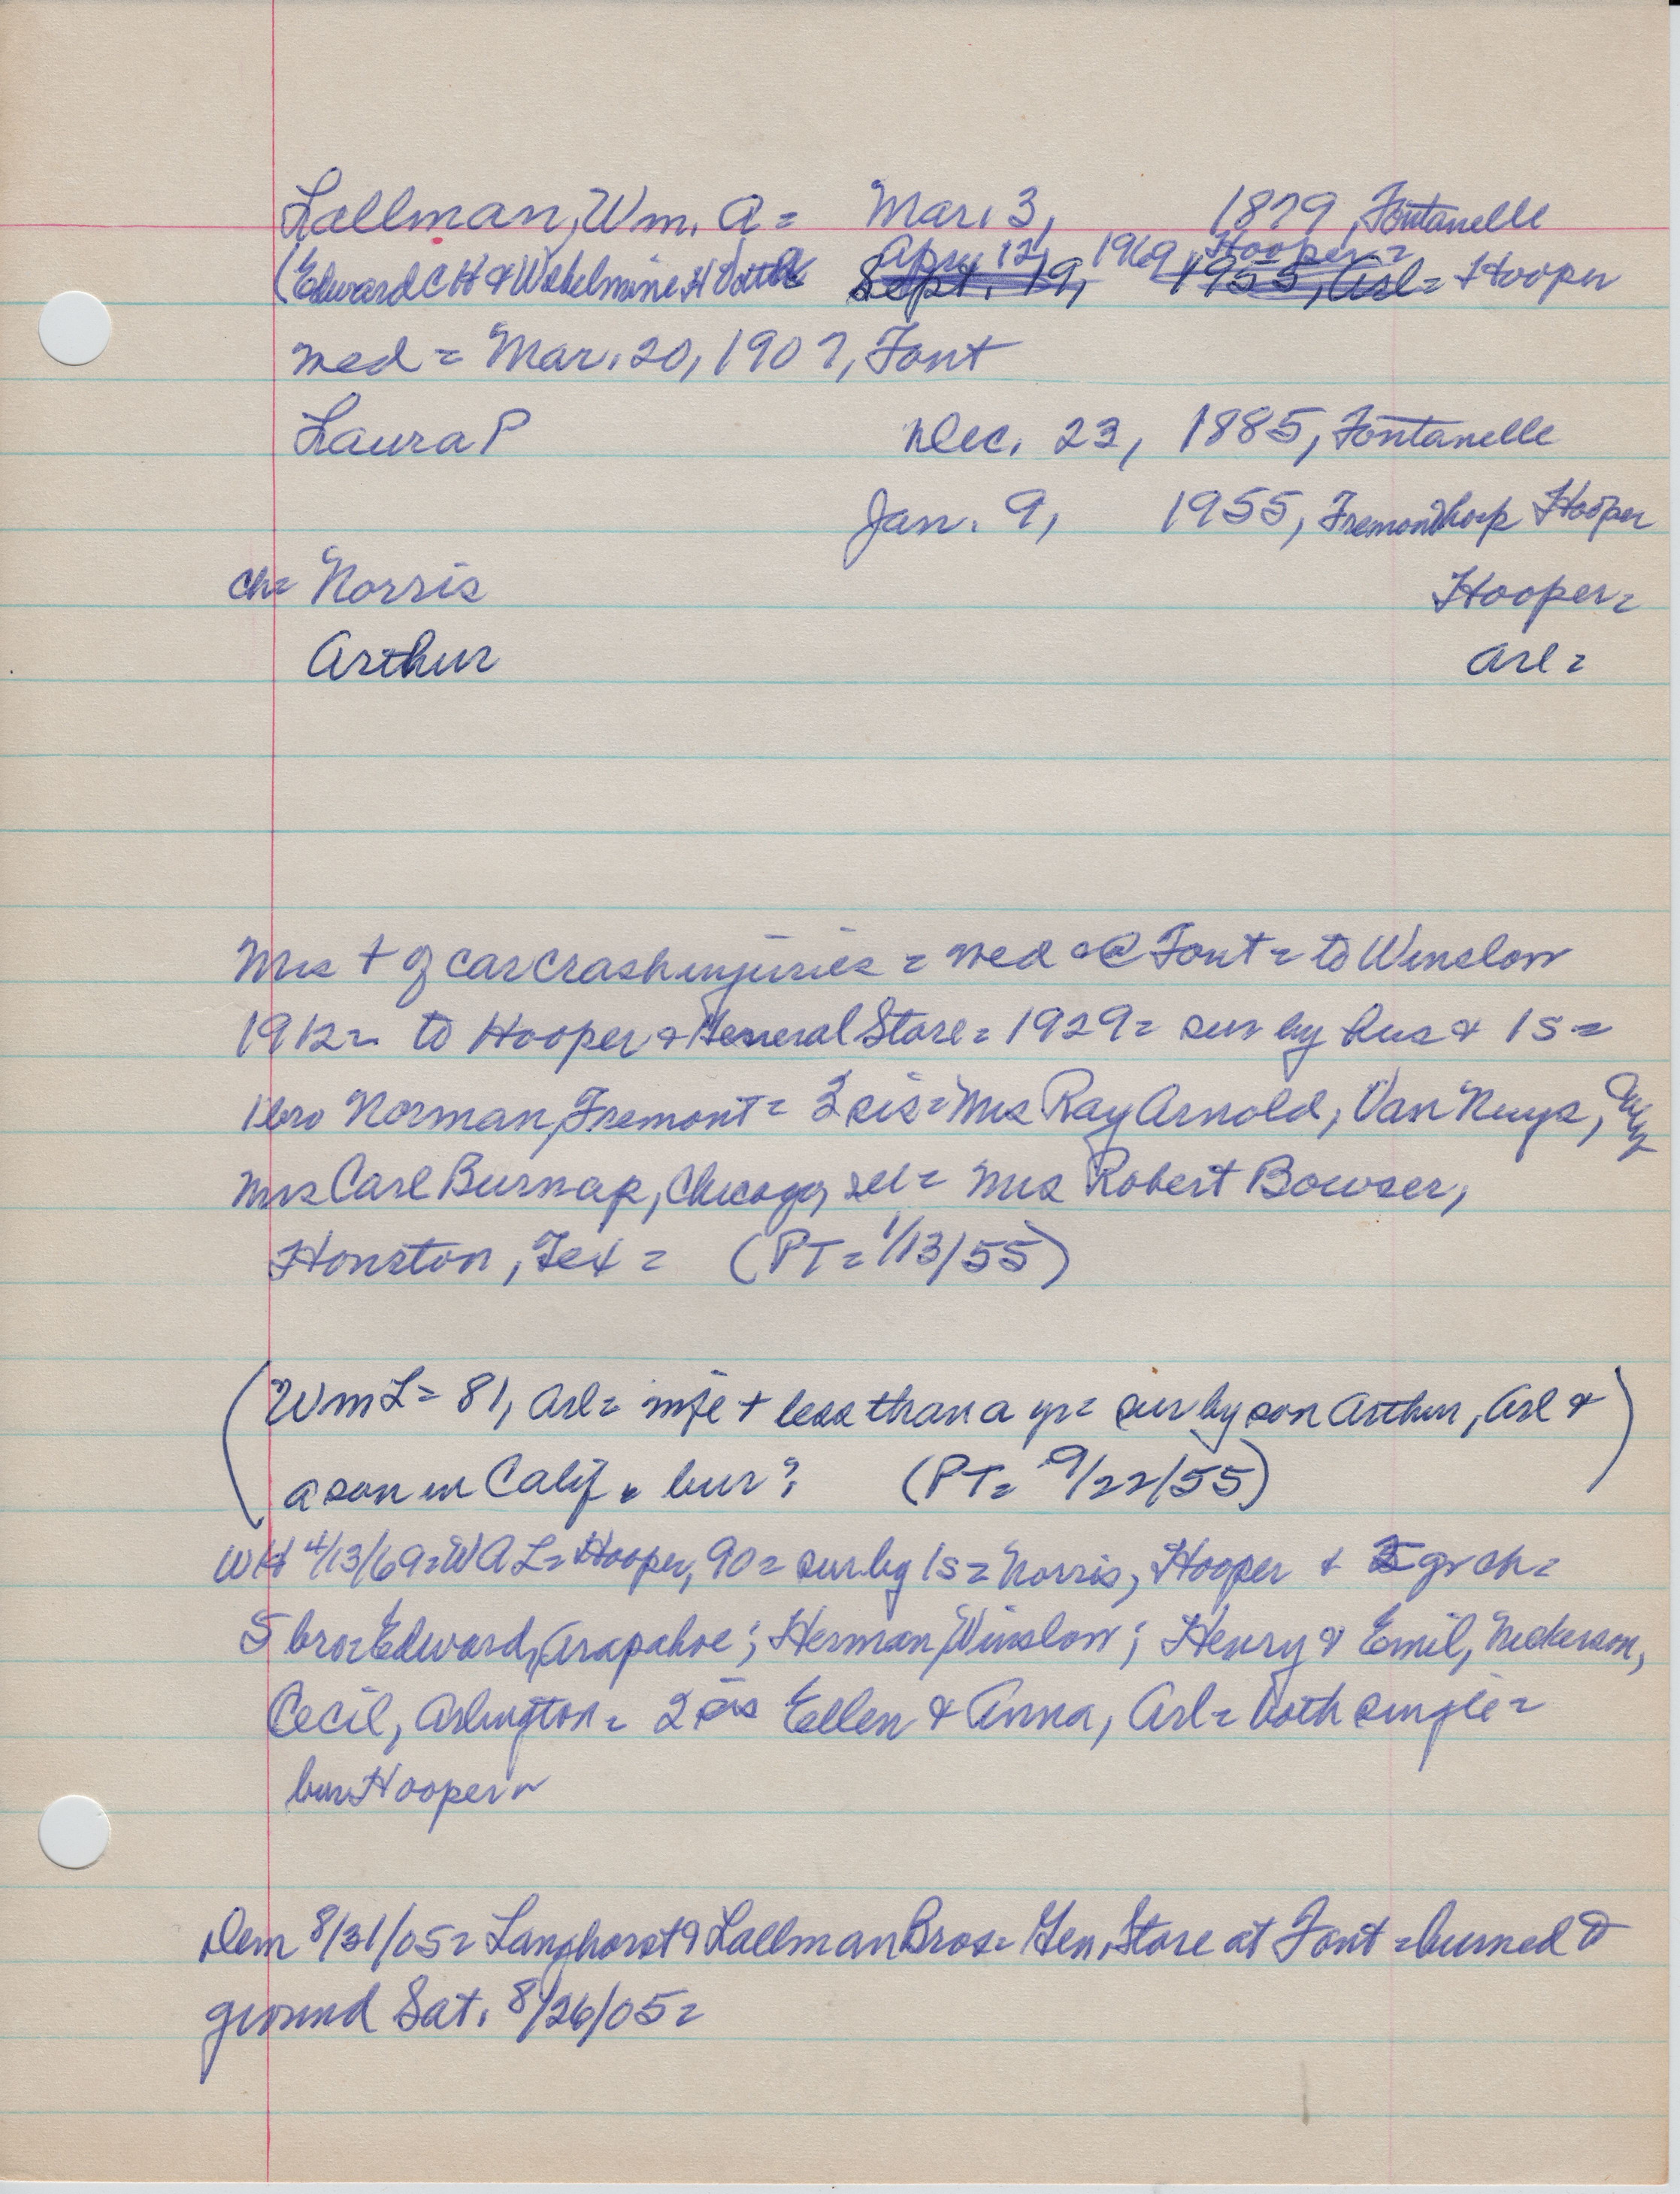 Lallman, Wm. A = Mar. 3, 1879, Fontanelle
Apr. 12, 1969, Hooper =
(Edward C H & Wilhelmine H Sept. 19, 1955, Arl = Hooper
med = Mar. 20, 1907, Font
Laura P Dec. 23, 1885, Fontanelle
Jan. 9, 1955, Fremont Hosp Hooper
ch = Norris Hooper =
Arthur Arl =
Mrs + of car crash injuries = med @ Font = to Winslow
1912 = to Hooper & General Store = 1929 = sur by hus & 1 s =
1 bro Norman, Fremont = 3 sis = Mrs Ray Arnold, Van Nuys,
Mrs Carl Burnap, Chicago, Ill = Mrs Robert Bowser,
Houston, Tex = (PT = 1/13/55)
(Wm L = 81, Arl = wife + less than a yr = sur by son Arthur, Arl &
a son in Calif. bur? (PT = 9/22/55)
WH 4/13/69 = W A L = Hooper, 90 = sur by 1 s = Norris, Hooper + gr ch =
5 bro = Edward, Arapahoe; Herman, Winslow; Henry & Emil, Nickerson,
Cecil, Arlington = 2 sis Ellen & Anna, Arl = both single =
bur Hooper =
Dem 8/31/05 = Langhorst & Lallman Bros = Gen. Store at Font = burned to
ground Sat. 8/26/05 =